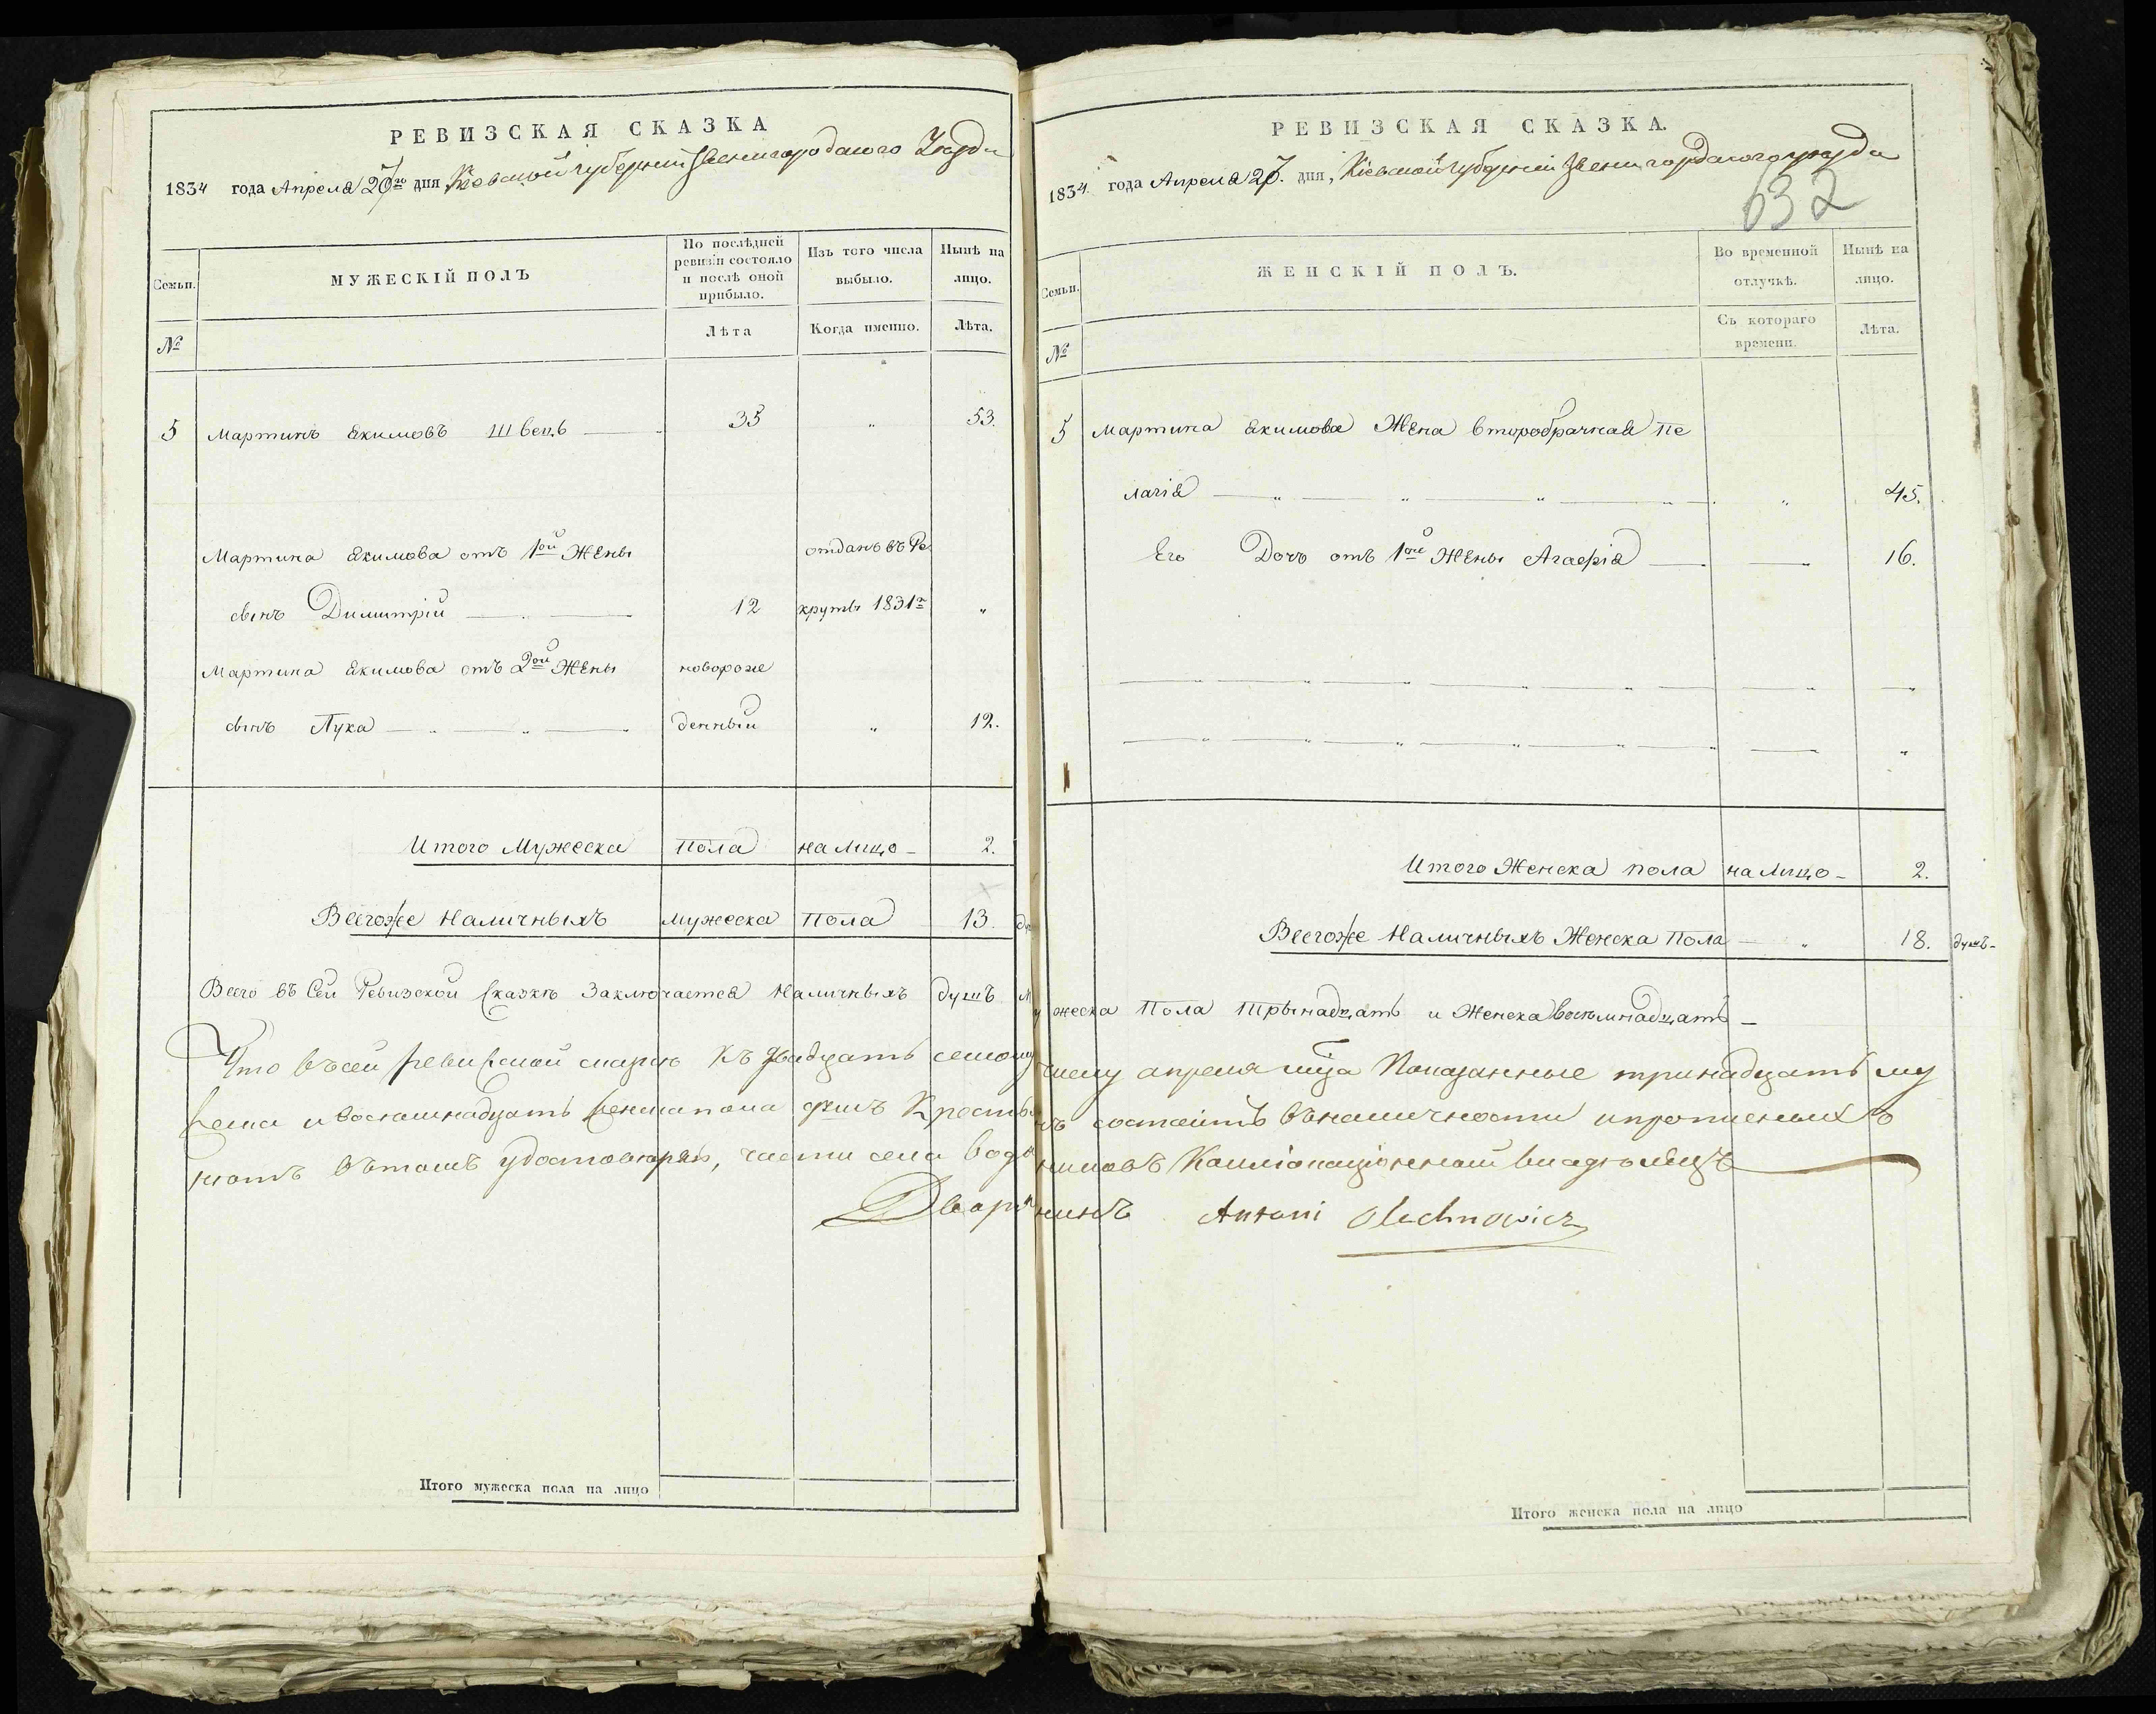 РЕВИЗСКАЯ СКАЗКА
1834 года Апреля 27го дня Кіевской губерніи Звенигородского Уезда
Семьи.
МУЖЕСКІЙ ПОЛЪ
По послѣдней ревизіи состояло и послѣ оной прибыло.
Изъ того числа выбыло.
Нынѣ на лицо.
№
Лѣта
Когда именно.
Лѣта.
5 Мартинъ Якимовъ Швець 35 „ 53.
Мартина Якимова отъ 1ой Жены отданъ въ Ре
сынъ Димитрій 12 круты 1831го „
Мартина Якимова отъ 2ой Жены новорож
сынъ Лука денный „ 12.
Итого Мужеска пола на лицо 2.
Всегоже Наличныхъ мужеска пола 13. ду
РЕВИЗСКАЯ СКАЗКА.
1834 года Апреля 27. дня, Кіевской губерніи Звенигородского уезда
632
Семьи.
ЖЕНСКІЙ ПОЛЪ.
Во временной отлучкѣ.
Нынѣ на лицо.
№
Съ котораго времени.
Лѣта.
5 Мартина Якимова Жена второбрачная Пе
лагія „ 45.
Его Дочь отъ 1ой Жены Агафія 16.
Итого Женска пола на лицо 2.
Всегоже Наличныхъ Женска пола „ 18. душъ
Всего въ Сей Ревизской Сказкѣ Заключается Наличныхъ душъ мужеска пола трынадцать и Женска восемнадцать
Что въ сей ревизской сказке къ двадцать семому числу апреля мца показанные тринадцать му
жеска и восемнадцать женска пола душъ крестьянъ состоитъ въ наличности и прописныхъ
нетъ въ томъ удостоверяю, части села Водяниковъ владелецъ
Дворянинъ Antoni Olechnowicz
Итого мужеска пола на лицо
Итого женска пола на лицо